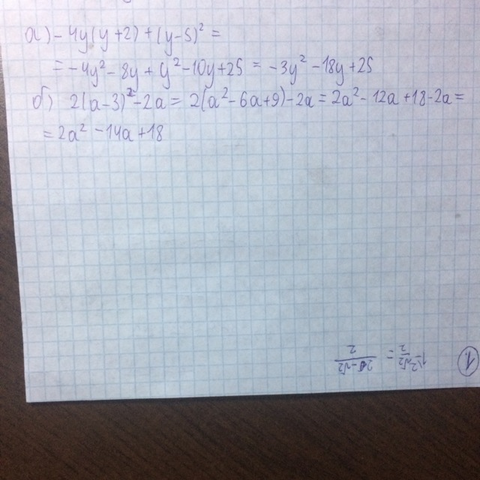 а) -4y(y+2)+(y-5)² =
= -4y²-8y+y²-10y+25 = -3y²-18y+25
б) 2(a-3)²-2a = 2(a²-6a+9)-2a = 2a²-12a+18-2a =
= 2a²-14a+18
1